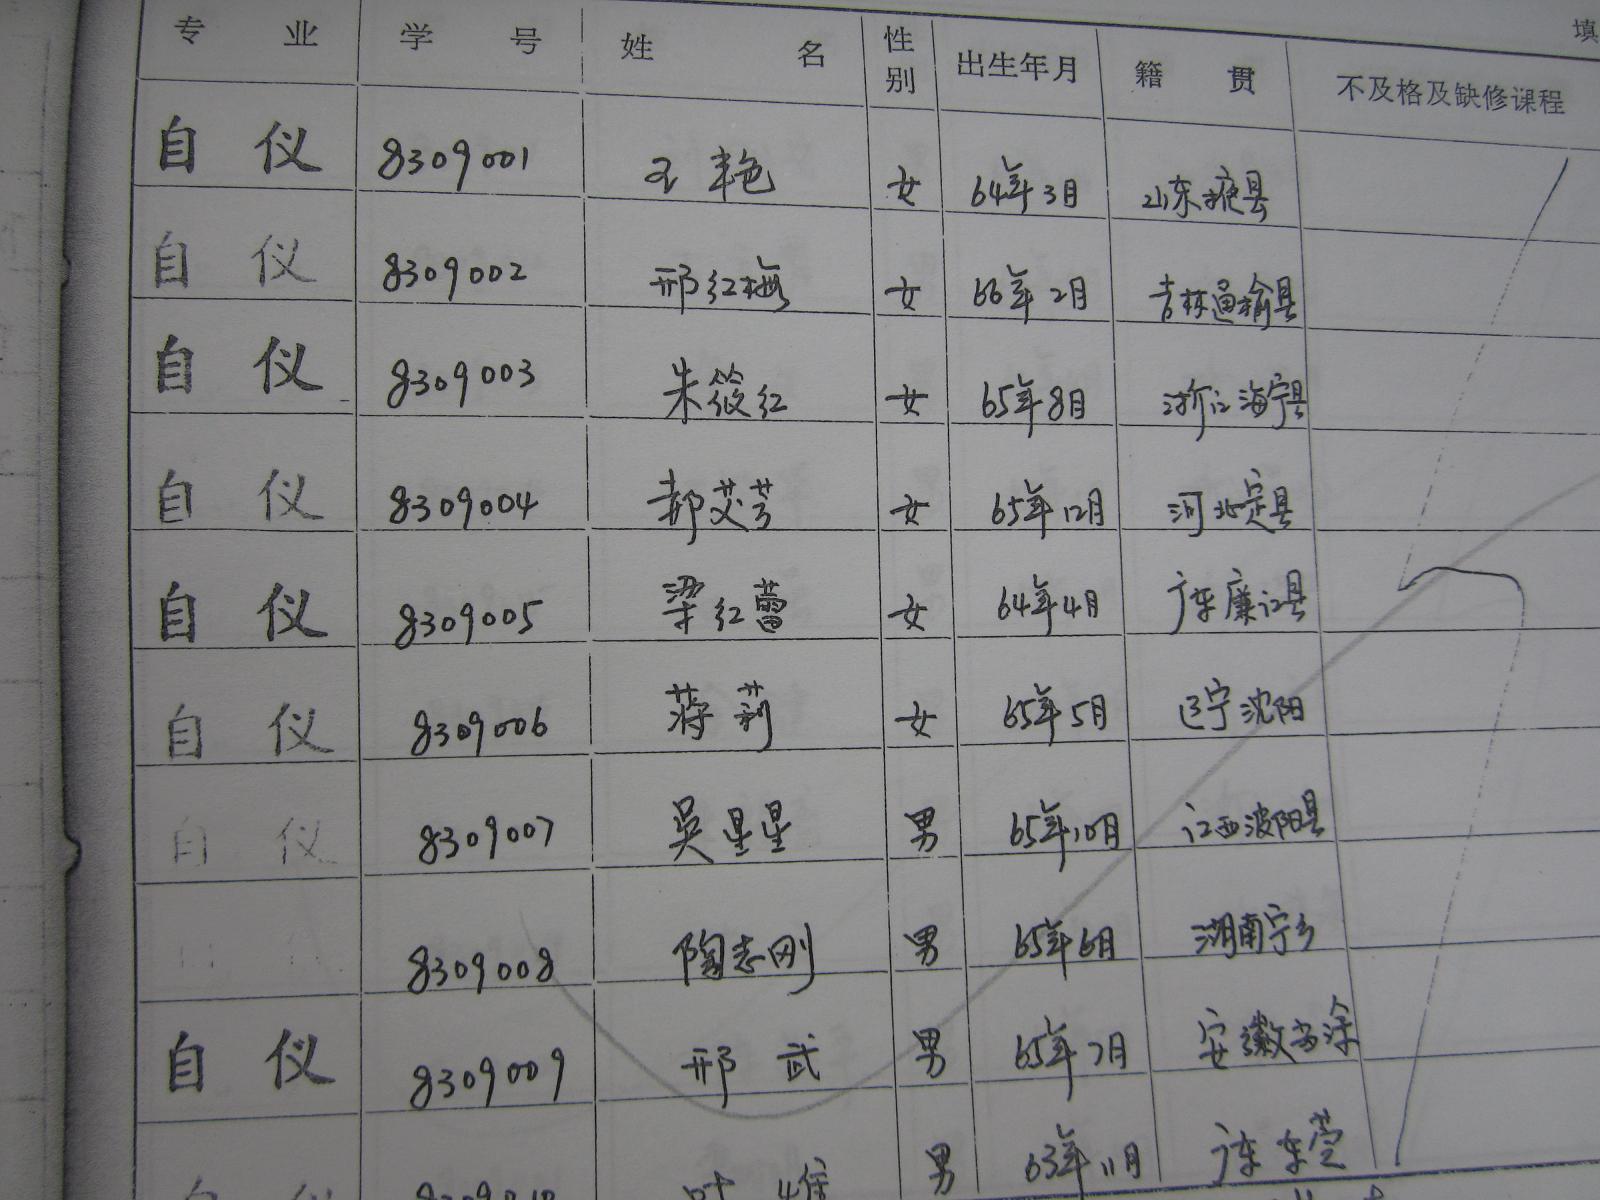 填
专 业 学 号 姓 名 性别 出生年月 籍 贯 不及格及缺修课程
自 仪 8309001 王艳 女 64年3月 山东掖县
自 仪 8309002 邢红梅 女 66年2月 吉林通榆县
自 仪 8309003 朱筱红 女 65年8月 浙江海宁县
自 仪 8309004 郝艾芳 女 65年12月 河北定县
自 仪 8309005 梁红蕾 女 64年4月 广东廉江县
自 仪 8309006 蒋莉 女 65年5月 辽宁沈阳
自 仪 8309007 吴星星 男 65年10月 江西波阳县
自 仪 8309008 陶志刚 男 65年6月 湖南宁乡
自 仪 8309009 邢武 男 65年7月 安徽当涂
自 仪 8309010 叶 男 63年11月 广东东莞